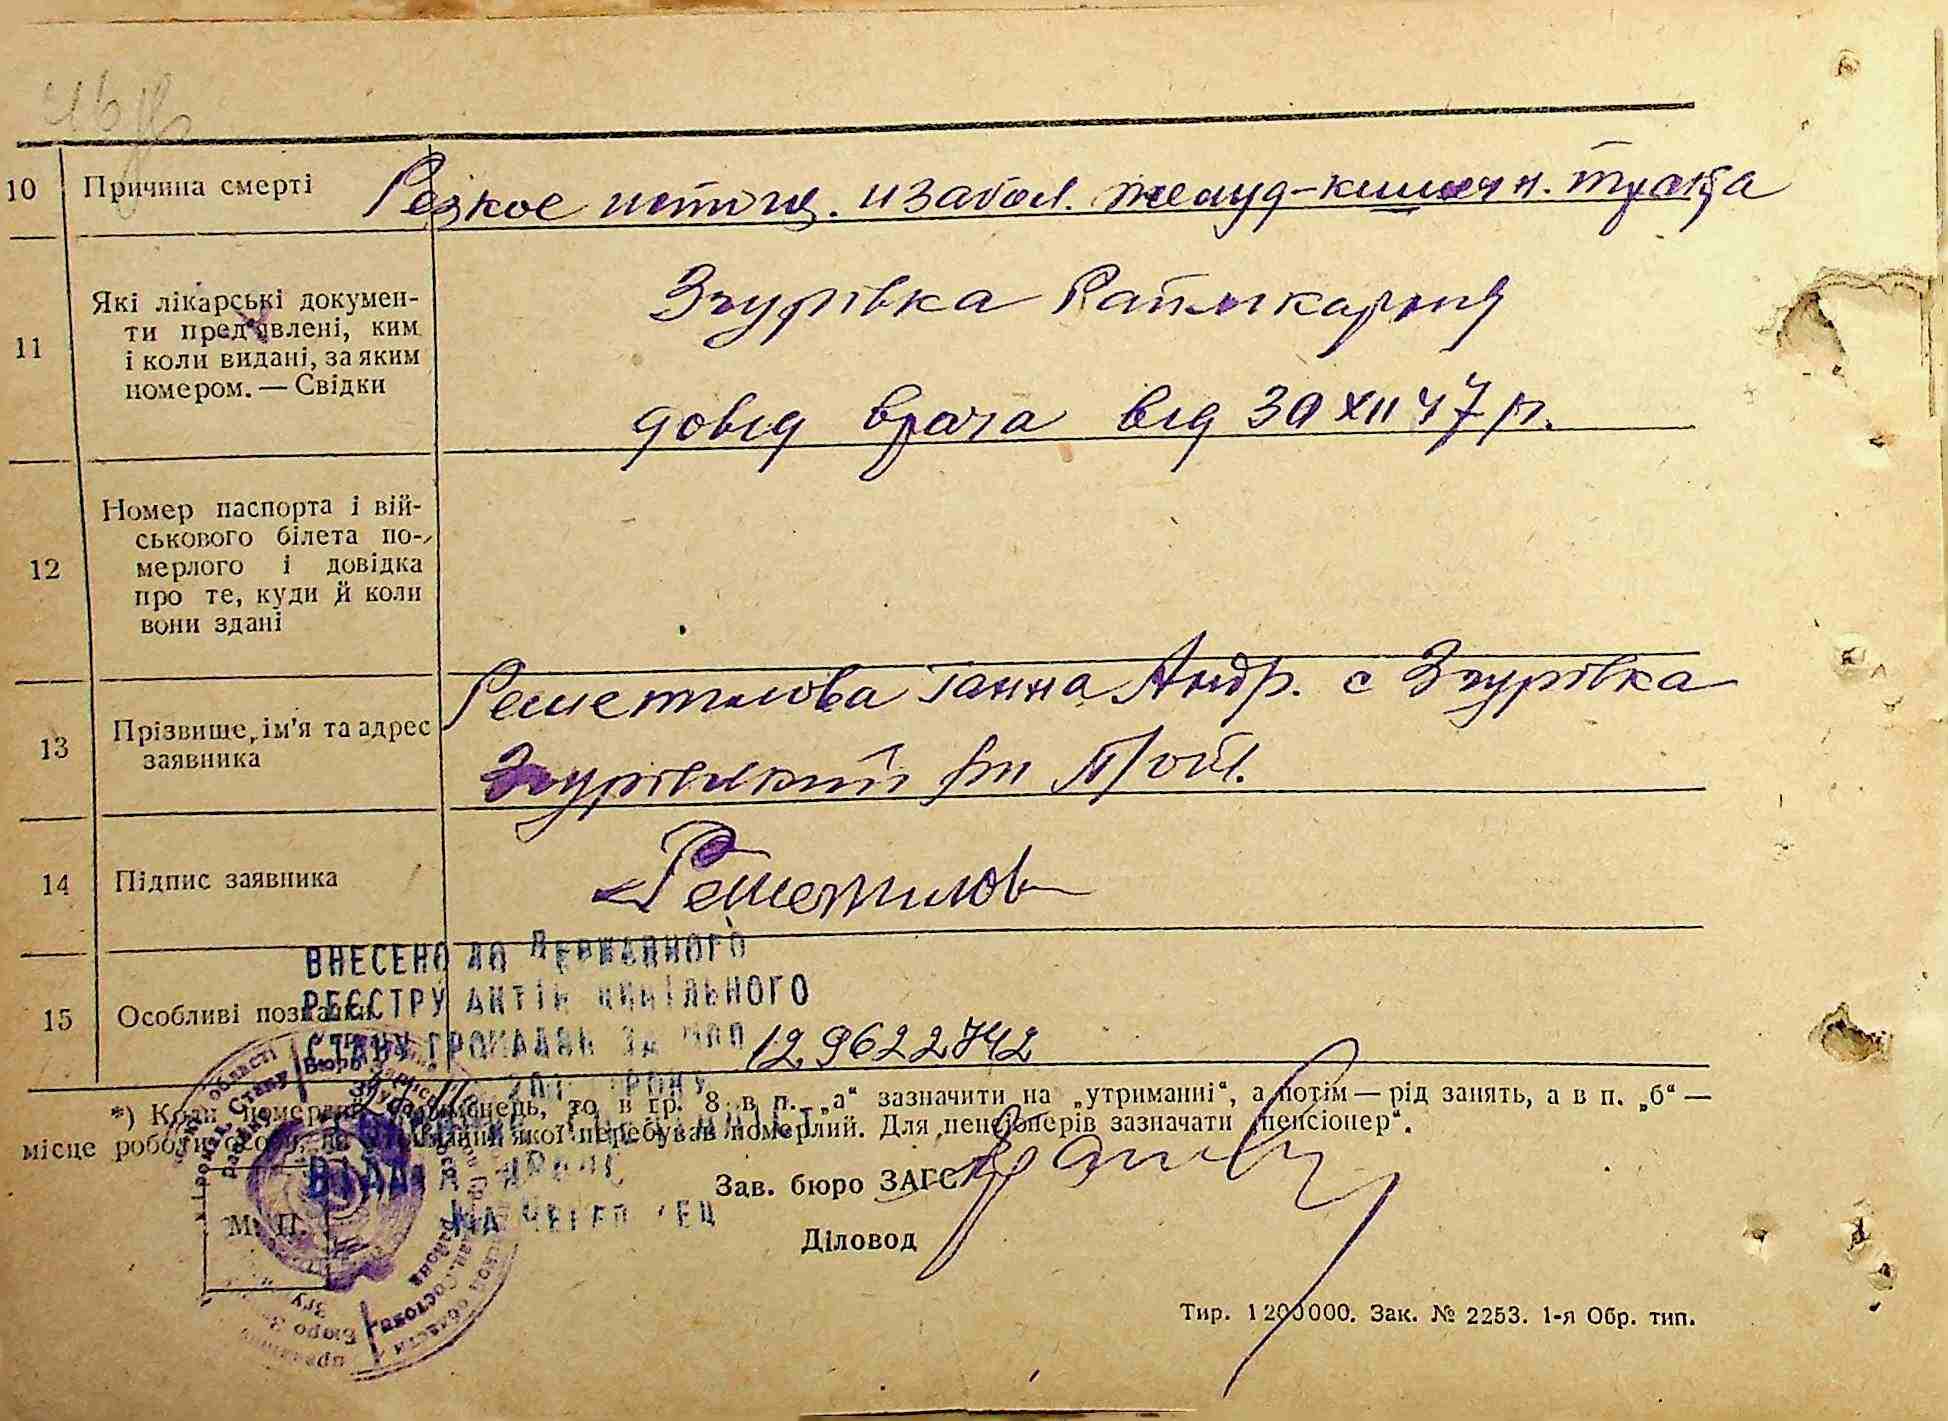 10 Причина смерті Резкое истощ. и забол. желуд-кишечн. тракта
11 Які лікарські докумен-
ти пред'явлені, ким
і коли видані, за яким
номером. — Свідки
Згурівка Райлікарня
довід врача від 30 XII 47 р.
12 Номер паспорта і вій-
ськового білета по-
мерлого і довідка
про те, куди й коли
вони здані
13 Прізвище, ім'я та адрес
заявника
Решетилова Ганна Андр. с Згурівка
Згурівский рн П/обл.
14 Підпис заявника Решетилов
ВНЕСЕНО ДО ДЕРЖАВНОГО
РЕЄСТРУ АКТІВ ЦИВІЛЬНОГО
СТАНУ ГРОМАДЯН ЗА
129622742
15 Особливі позначки
*) Коли померлий утриманець, то в гр. 8 в п. „а“ зазначити на „утриманні“, а потім — рід занять, а в п. „б“ —
місце роботи особи, на утриманні якої перебував померлий. Для пенсіонерів зазначати „пенсіонер“.
Зав. бюро ЗАГС
М. П.
Діловод
Тир. 1200000. Зак. № 2253. 1-я Обр. тип.